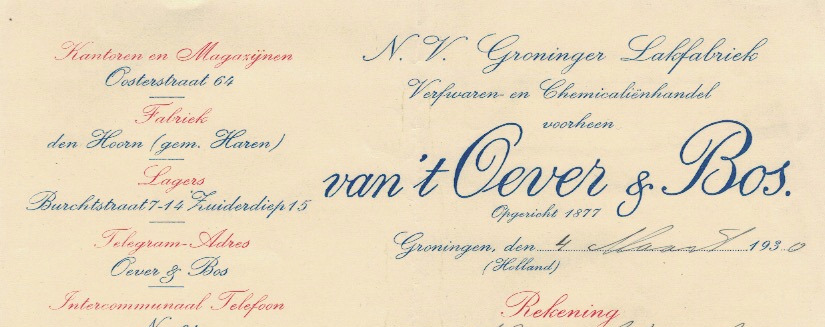 Kantoren en Magazijnen
Oosterstraat 64
Fabriek
den Hoorn (gem. Haren)
Lagers
Burchtstraat 7-14 Zuiderdiep 15
Telegram-Adres
Oever & Bos
Intercommunaal Telefoon
N. V. Groninger Lakfabriek
Verfwaren- en Chemicaliënhandel
voorheen
van 't Oever & Bos.
Opgericht 1877
Groningen, den 4 Maart 1930
(Holland)
Rekening